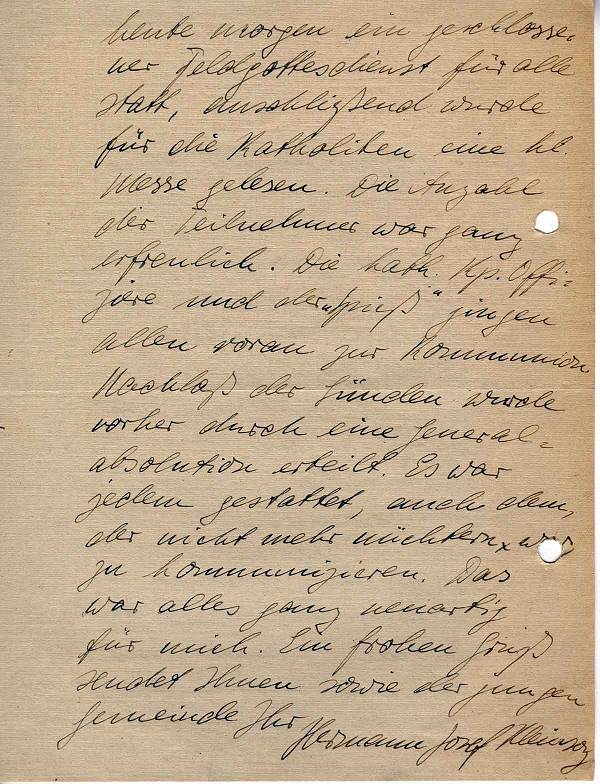 heute morgen ein geschlosse-
ner Feldgottesdienst für alle
statt, anschließend wurde
für die Katholiken eine hl.
Messe gelesen. Die Anzahl
der Teilnehmer war ganz
erfreulich. Die kath. Kp. Offi-
ziere und der „Spieß" gingen
allen voran zur Kommunion
Nachlaß der Sünden wurde
vorher durch eine General-
absolution erteilt. Es war
jedem gestattet, auch dem,
der nicht mehr nüchtern war
zu kommunizieren. Das
war alles ganz neuartig
für mich. Ein frohen Gruß
sendet Ihnen sowie der jungen
Gemeinde Ihr
Hermann Josef